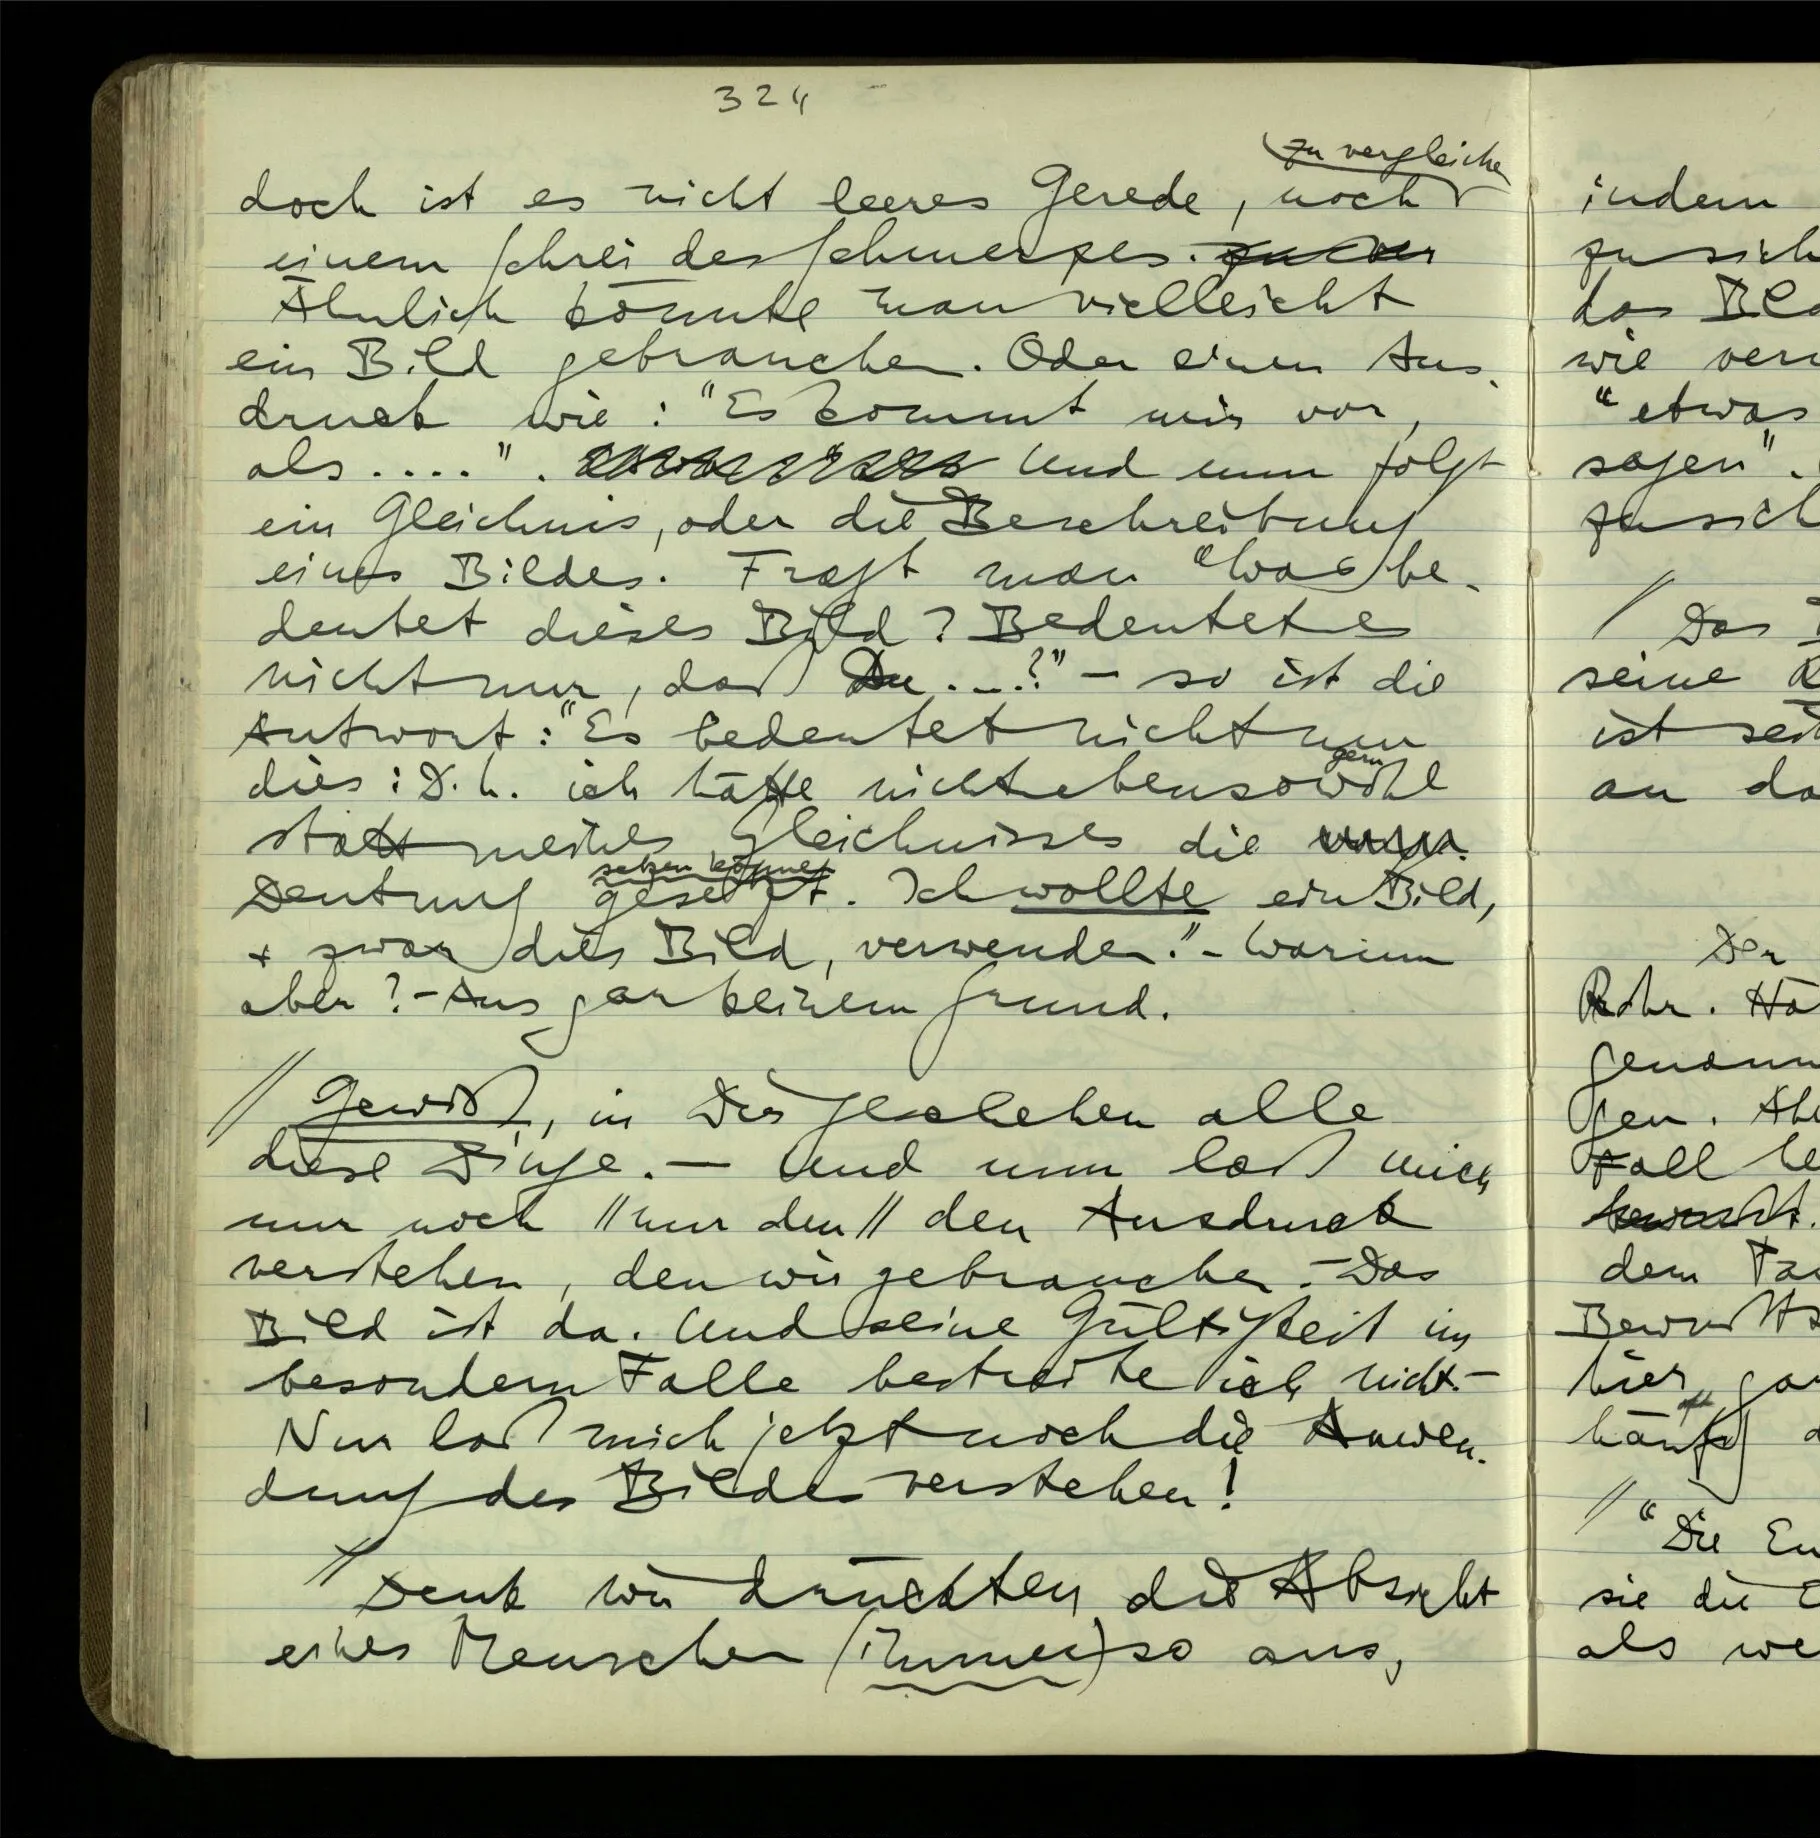 324
zu vergleichen
doch ist es nicht leeres Gerede, noch
einem Schrei des Schmerzes.
Ähnlich könnte man vielleicht
ein Bild gebrauchen. Oder einen Aus-
druck wie: "Es kommt mir vor,
als ....". Und nun folgt
ein Gleichnis, oder die Beschreibung
eines Bildes. Fragt man "Was be-
deutet dieses Bild? Bedeutet es
nicht nur, daß Du ....?" – so ist die
Antwort: "Es bedeutet nicht nur
gern
dies: D.h. ich hätte nicht ebensowohl
statt meines Gleichnisses die
setzen können
Deutung gesetzt. Ich wollte ein Bild,
+ zwar dies Bild, verwenden." – Warum
aber? – Aus gar keinem Grund.
// Gewiß, in Dir geschehen alle
diese Dinge. – Und nun laß mich
nur noch // nur den // den Ausdruck
verstehen, den wir gebrauchen. – Das
Bild ist da. Und seine Gültigkeit im
besondern Falle bestreite ich nicht. –
Nur laß mich jetzt noch die Anwen-
dung des Bildes verstehen!
// Denk wir drückten die Absicht
eines Menschen (immer) so aus,
indem
zu sich
das
wie
"etwas
sagen".
zu sich
/ Das
seine
ist
an
Der
Rohr.
gen.
Fall
dem
hier
// "Die
sie die
als